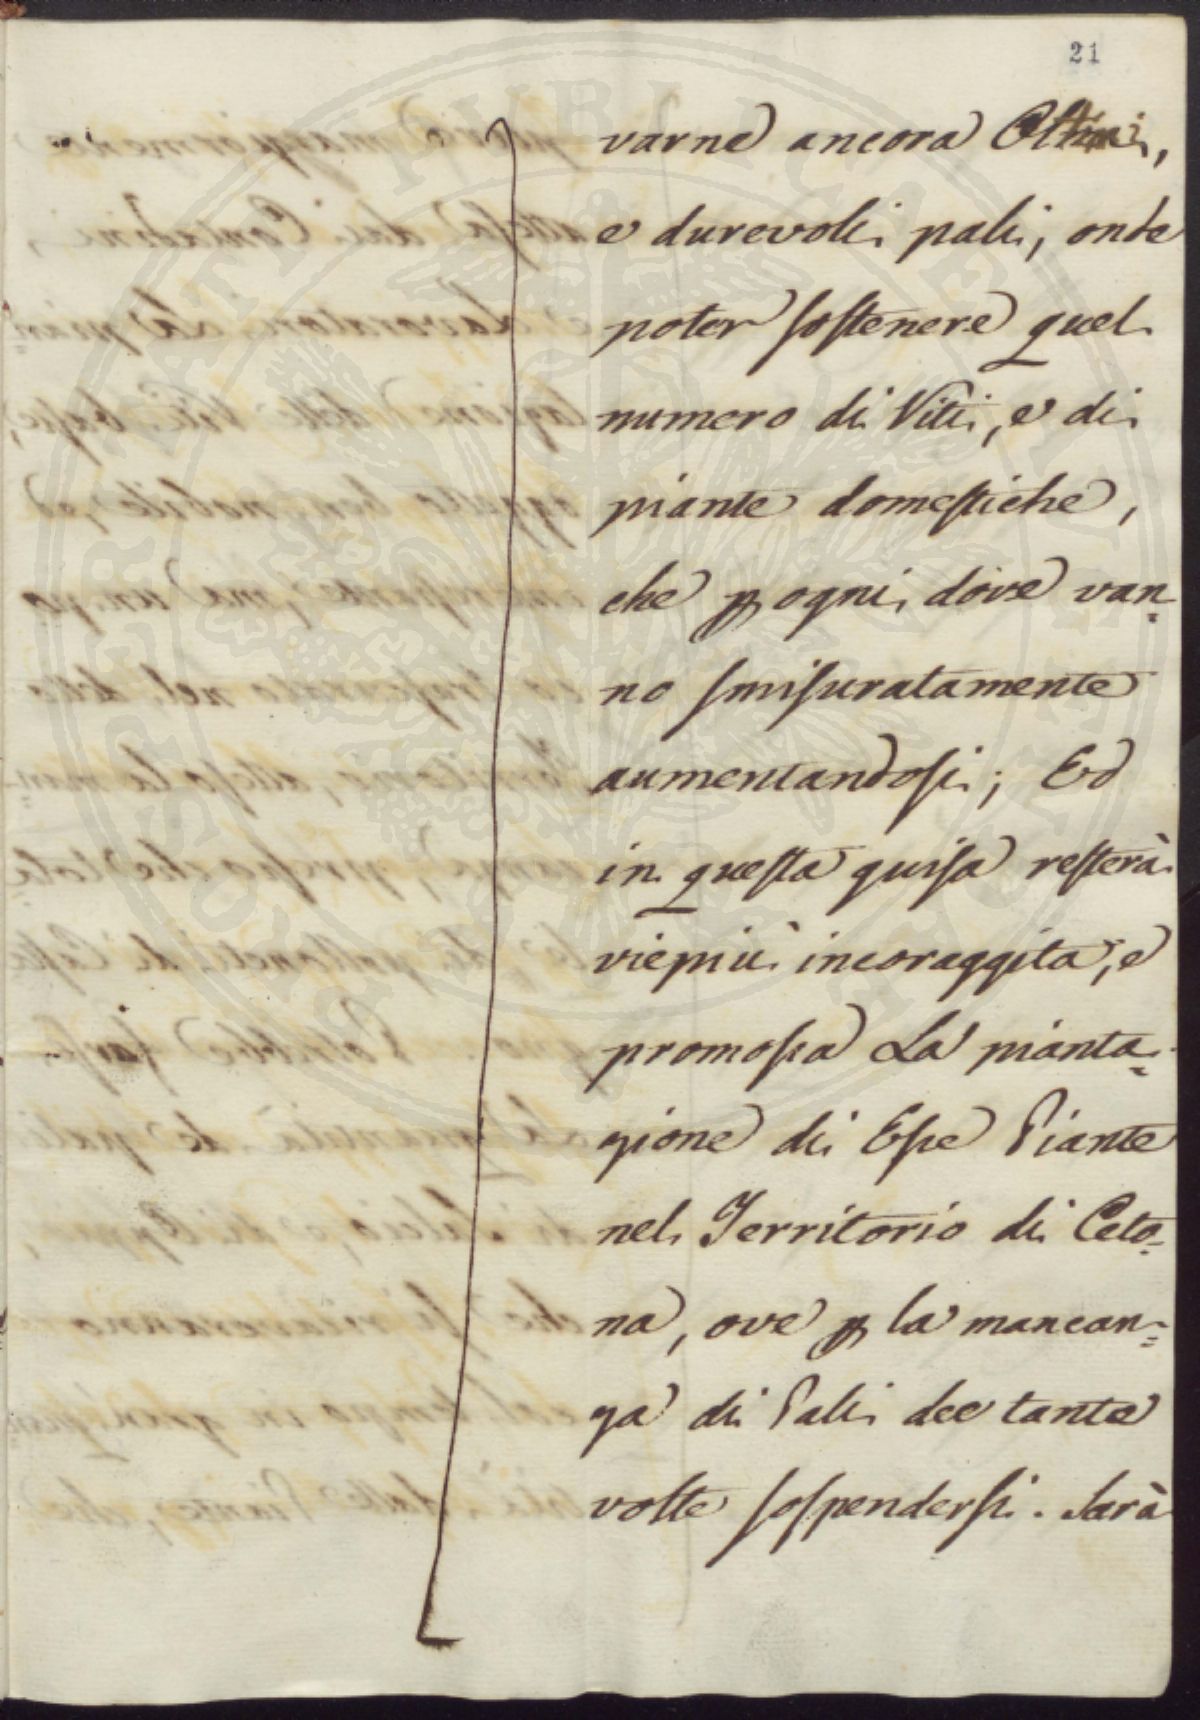 21
varne ancora Ottimi,
e durevoli pali, onde
poter sostenere quel
numero di Viti, e di
piante domestiche,
che p ogni dove van=
no smisuratamente
aumentandosi; Ed
in questa guisa resterà
viepiù incoraggita, e
promossa La pianta=
gione di Esse Piante
nel Territorio di Ceto=
na, ove p la mancan=
za di Pali dee tante
volte sospendersi. Sarà